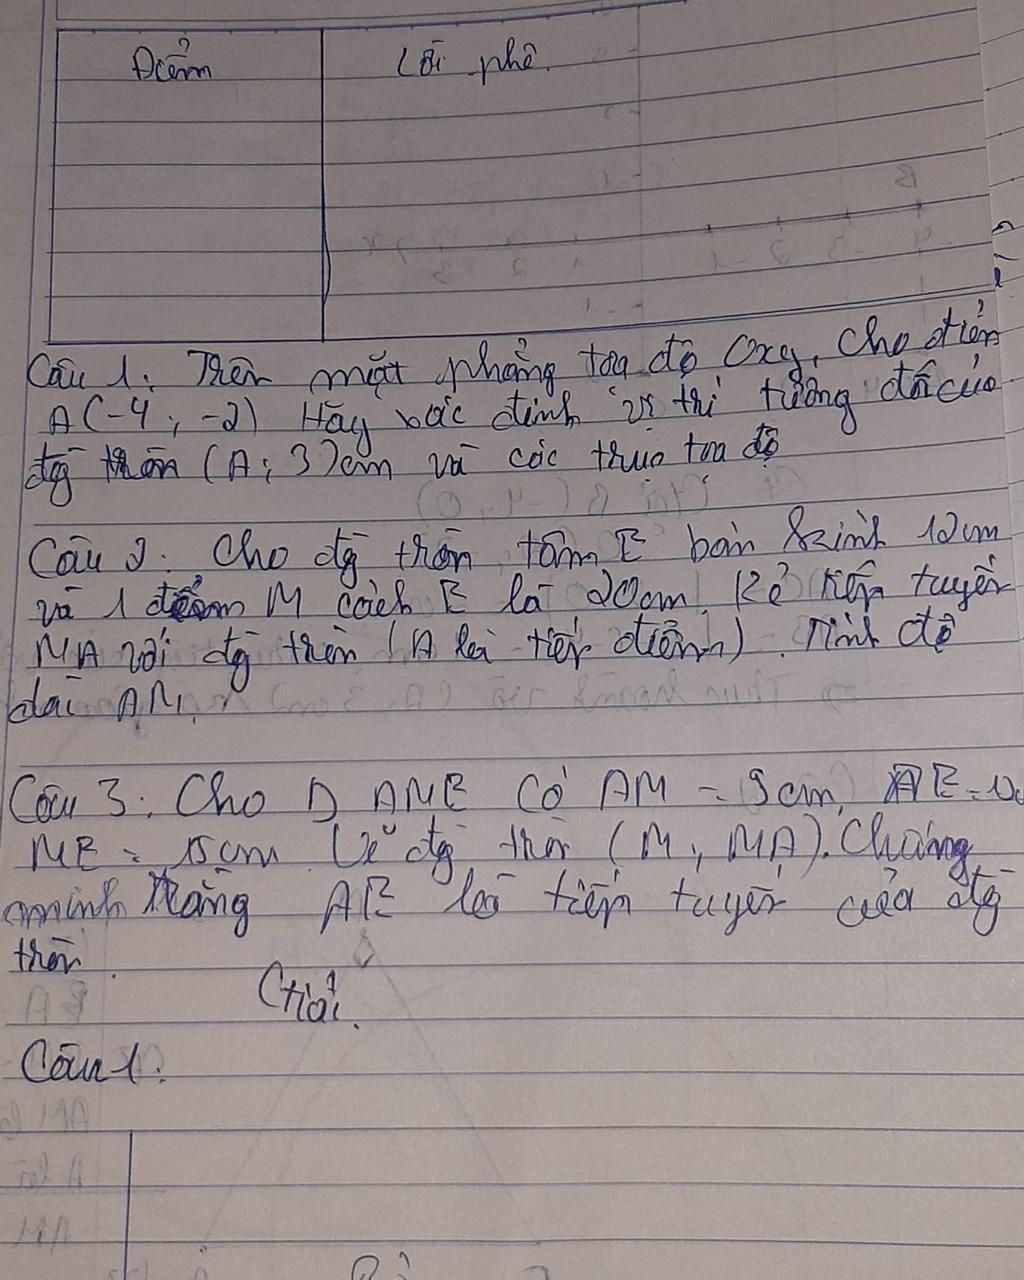 Điểm
Lời phê.
Câu 1: Trên mặt phẳng tọa độ Oxy, Cho điểm
A(-4; -2) Hãy xác định vị trí tương đối của
đg tròn (A; 3)cm và các trục tọa độ
Câu 2: Cho đg tròn tâm E bán kính 12cm
và 1 điểm M cách E là 20cm. Kẻ tiếp tuyến
MA với đg tròn (A là tiếp điểm). Tính độ
dài AM.
Câu 3: Cho D AME Có AM = 9cm, AE = 12
ME = 15cm Vẽ đg tròn (M; MA). Chứng
minh rằng AE là tiếp tuyến của đg
tròn.
Giải.
Câu 1: